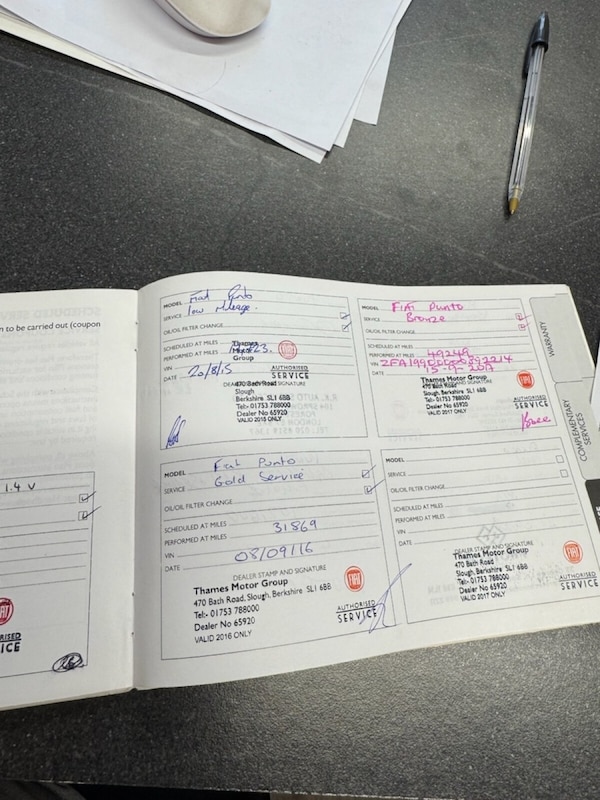 n to be carried out (coupon
1.4 V
RISED
ICE
MODEL Fiat Punto
SERVICE low Mileage.
OIL/OIL FILTER CHANGE
SCHEDULED AT MILES
PERFORMED AT MILES
VIN
DATE 20/8/15
Thames Motor Group
FIAT
AUTHORISED
SERVICE
DEALER STAMP AND SIGNATURE
470 Bath Road
Slough,
Berkshire SL1 6BB
Tel:- 01753 788000
Dealer No 65920
VALID 2015 ONLY
MODEL FIAT Punto
SERVICE Bronze
OIL/OIL FILTER CHANGE
SCHEDULED AT MILES
PERFORMED AT MILES 49249
VIN
DATE 15-9-2017
Thames Motor Group
DEALER STAMP AND SIGNATURE
470 Bath Road
Slough, Berkshire
SL1 6BB
Tel:- 01753 788000
Dealer No 65920
VALID 2017 ONLY
FIAT
AUTHORISED
SERVICE
MODEL Fiat Punto
SERVICE Gold Service
OIL/OIL FILTER CHANGE
SCHEDULED AT MILES
PERFORMED AT MILES 31869
VIN
DATE 08/09/16
DEALER STAMP AND SIGNATURE
Thames Motor Group
470 Bath Road, Slough, Berkshire SL1 6BB
Tel:- 01753 788000
Dealer No 65920
VALID 2016 ONLY
FIAT
AUTHORISED
SERVICE
MODEL
SERVICE
OIL/OIL FILTER CHANGE
SCHEDULED AT MILES
PERFORMED AT MILES
VIN
DATE
DEALER STAMP AND SIGNATURE
Thames Motor Group
470 Bath Road
Slough, Berkshire SL1 6BB
Tel:- 01753 788000
Dealer No 65920
VALID 2017 ONLY
FIAT
AUTHORISED
SERVICE
WARRANTY
COMPLEMENTARY
SERVICES